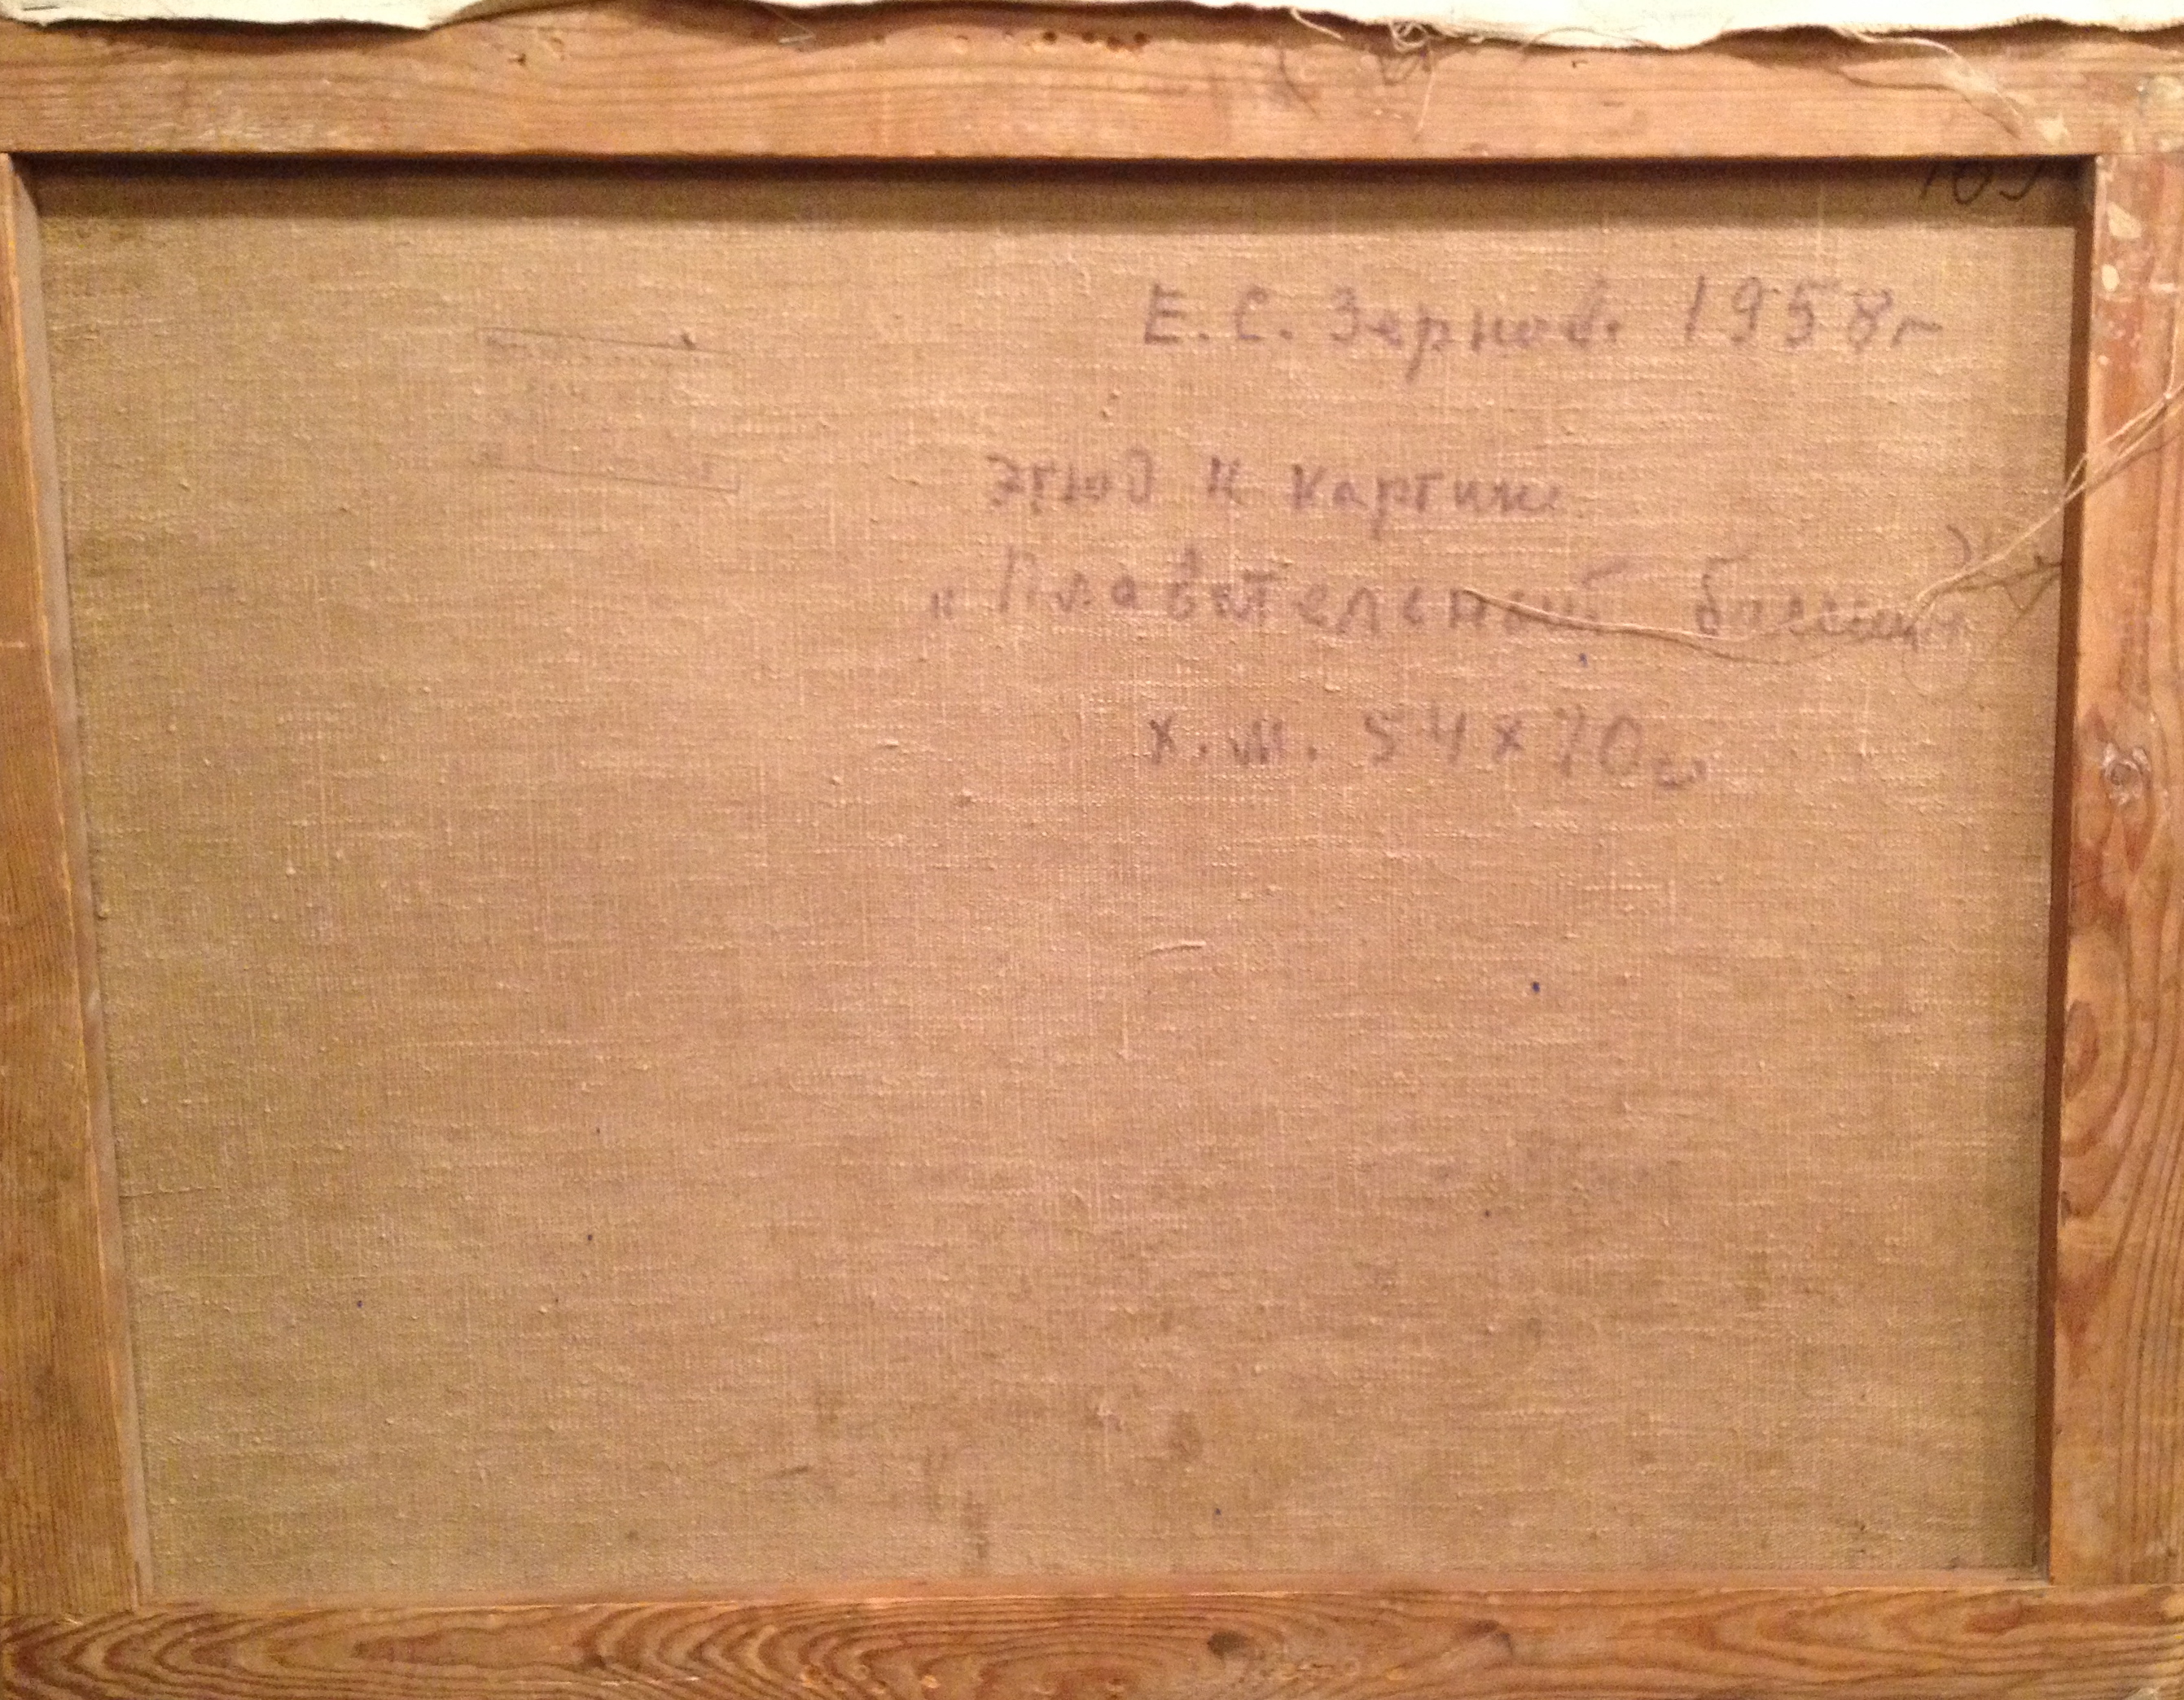 Е. С. Зернов. 1958г
этюд к картине
„Плавательный бассейн
х.м. 54х70см